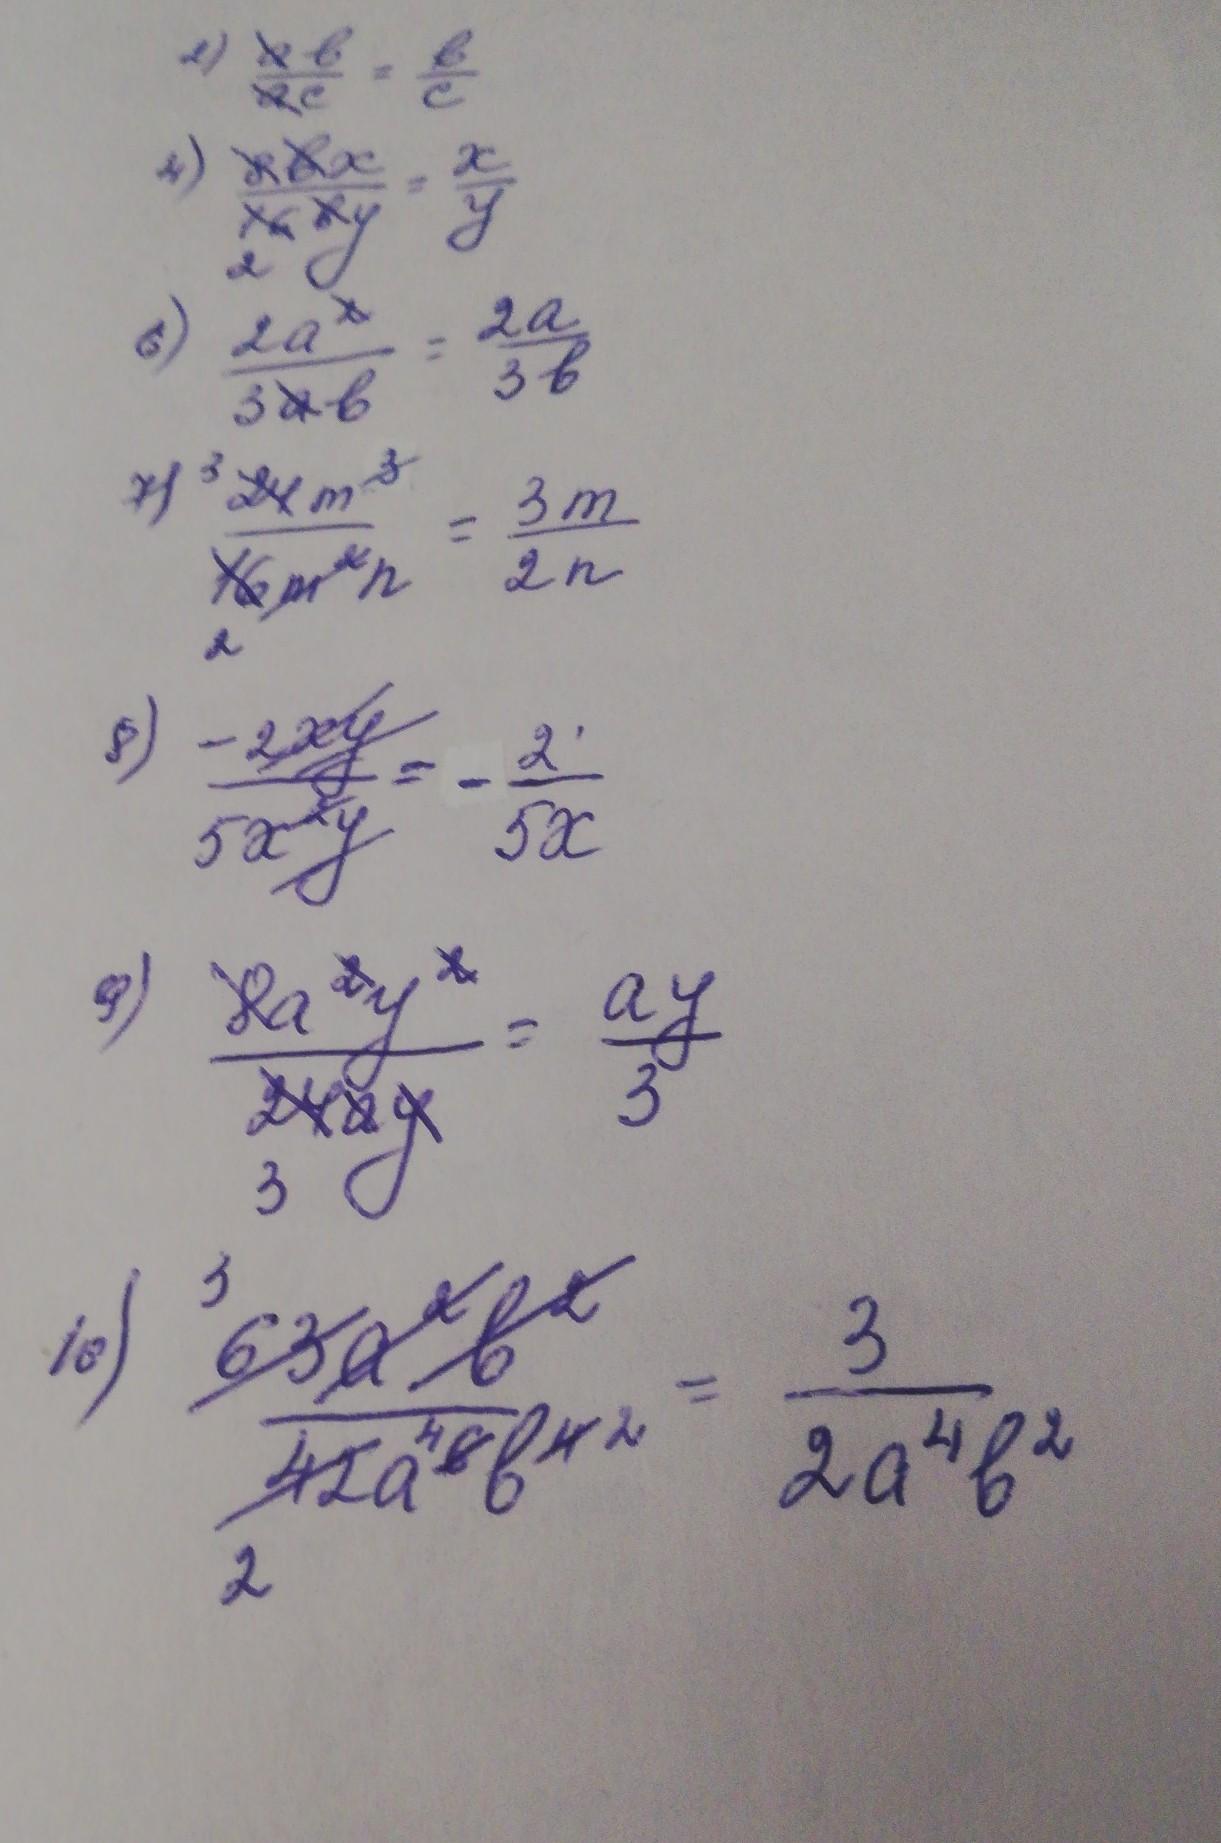 2) ab/ac = b/c
4) 8bx/16by = x/y
2
6) 2a²/3ab = 2a/3b
7) 3 24m³/16m²n = 3m/2n
2
8) -2xy/5x²y = - 2/5x
9) 8a²y²/24ay = ay/3
3
3
10) 63a²b²/42a⁴ ⁶b⁴ ² = 3/2a⁴b²
2